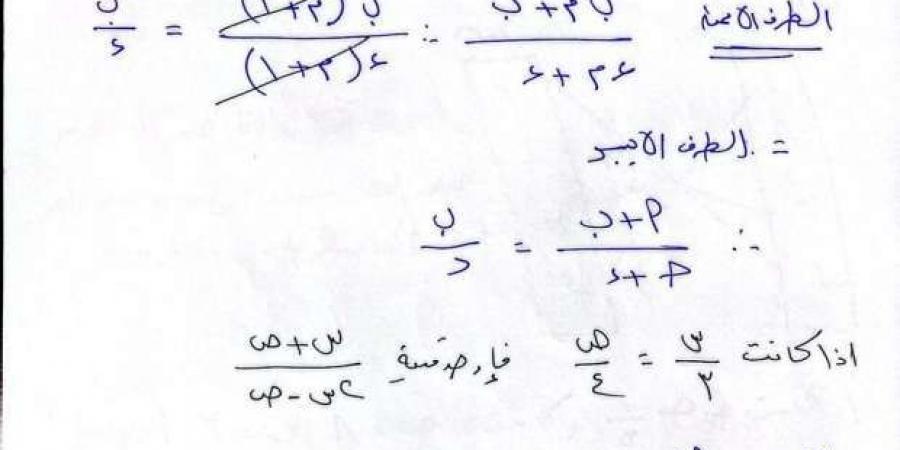 الطرف الايمن ب م + ب / ء م + ء ∴ ب (م + ١) / ء (م + ١) = ب / ء
= الطرف الايسر
∴ (م + ب) / (ح + ء) = ب / د
اذا كانت س / ٣ = ص / ٤ فإوجد قيمة (س + ص) / (٢س - ص)